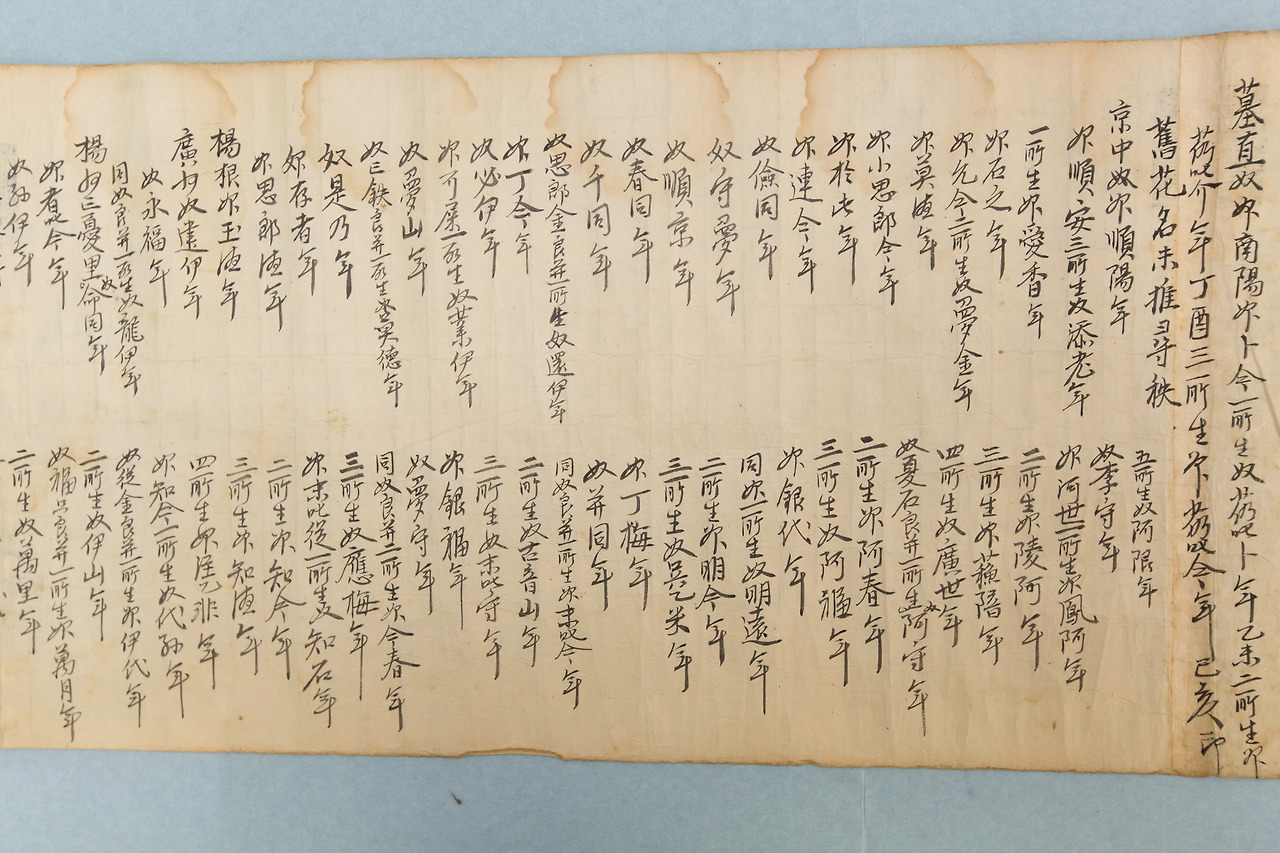 墓直奴婢南陽婢卜今一所生奴芿叱卜年乙未二所生婢
芿叱介年丁酉三所生婢芿叱今年己亥印
舊花名未推尋秩
京中奴婢順陽年
婢順安三所生奴添老年
一所生婢愛香年
婢石之年
婢允今二所生奴夢金年
婢莫德年
婢小思郎今年
婢於屯年
婢連今年
奴儉同年
奴守夢年
奴順京年
奴春同年
奴千同年
奴思郎金良并一所生奴還伊年
婢丁今年
奴必伊年
婢可屎一所生奴業伊年
奴夢山年
奴三鉄良并一所生婢莫德年
奴是乃年
婢存者年
婢思郎德年
楊根婢玉德年
廣州奴建伊年
奴永福年
同奴良并一所生奴龍伊年
楊州三憂里奴命同年
婢者叱今年
奴孫伊年
五所生奴阿限年
奴李守年
婢河世一所生婢鳳阿年
二所生婢陵阿年
三所生婢年
四所生奴廣世年
奴夏石良并一所生奴阿守年
二所生婢阿春年
三所生奴阿福年
婢銀代年
同婢一所生奴明遠年
二所生婢明今年
三所生奴年
婢丁梅年
奴并同年
同奴良并一所生婢末叱今年
二所生奴古音山年
三所生奴末叱守年
婢銀福年
奴夢守年
同奴良并一所生婢今春年
三所生奴應梅年
婢末叱從一所生奴知石年
二所生婢知今年
三所生婢知德年
四所生婢年
婢知今一所生奴代孫年
奴從金良并一所生婢伊代年
二所生奴伊山年
奴福只良并一所生婢萬月年
二所生奴萬里年